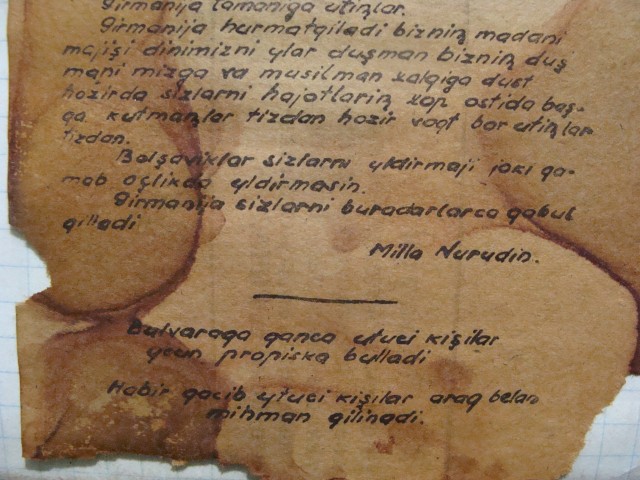 girmanija tamaniga utiꞑlar.
girmanija hurmatqiladi bizniꞑ madani
majişi dinimizni ylar duşman bizniꞑ duş
mani mizga va musilman xalqiga dust
hozirda sizlarni hajotlariꞑ xop ostida baş-
qa kutmaꞑlar tizdan hozir voqt bor utiꞑlar
tizdan.
Bolşaviklar sizlarni yldirmaji joki qa-
mab oçlikda yldirmasin.
girmanija sizlarni buradarlarca qabul
qilladi
Milla Nurudin.
Bulvaraqa qanca utuci kişilar
ycun propiska bulladi
Habir qacib ytuci kişilar araq belan
mihman qilinadi.